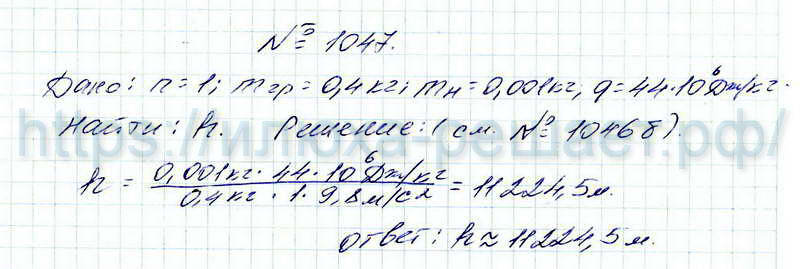 № 1047.
Дано: n=1; mгр=0,4кг; mн=0,001кг, q=44·10⁶Дж/кг.
Найти: h. Решение: (см. № 1046б).
https://илюха-решает.рф/
h = 0,001кг · 44·10⁶Дж/кг / 0,4кг · 1 · 9,8м/с2 = 11224,5м.
Ответ: h≈11224,5м.